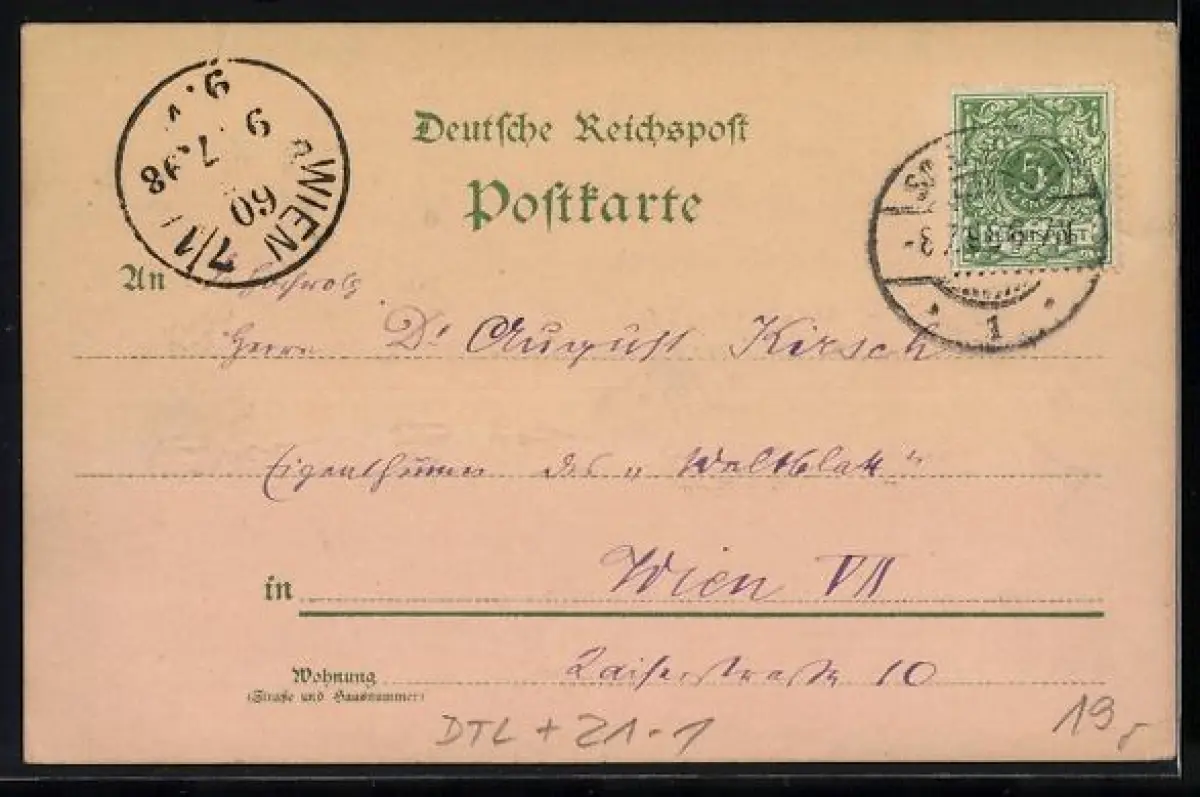 Deutsche Reichspost
Postkarte
WIEN 7/1
60
9 7 98
9.V
5
REICHSPOST
1
An
Hochwolg
Herrn Dr August Kirsch
Eigenthümer des „Weltblatt"
in Wien VII
Wohnung Kaiserstraße 10
(Straße und Hausnummer)
DTL + Z1-1
19,-